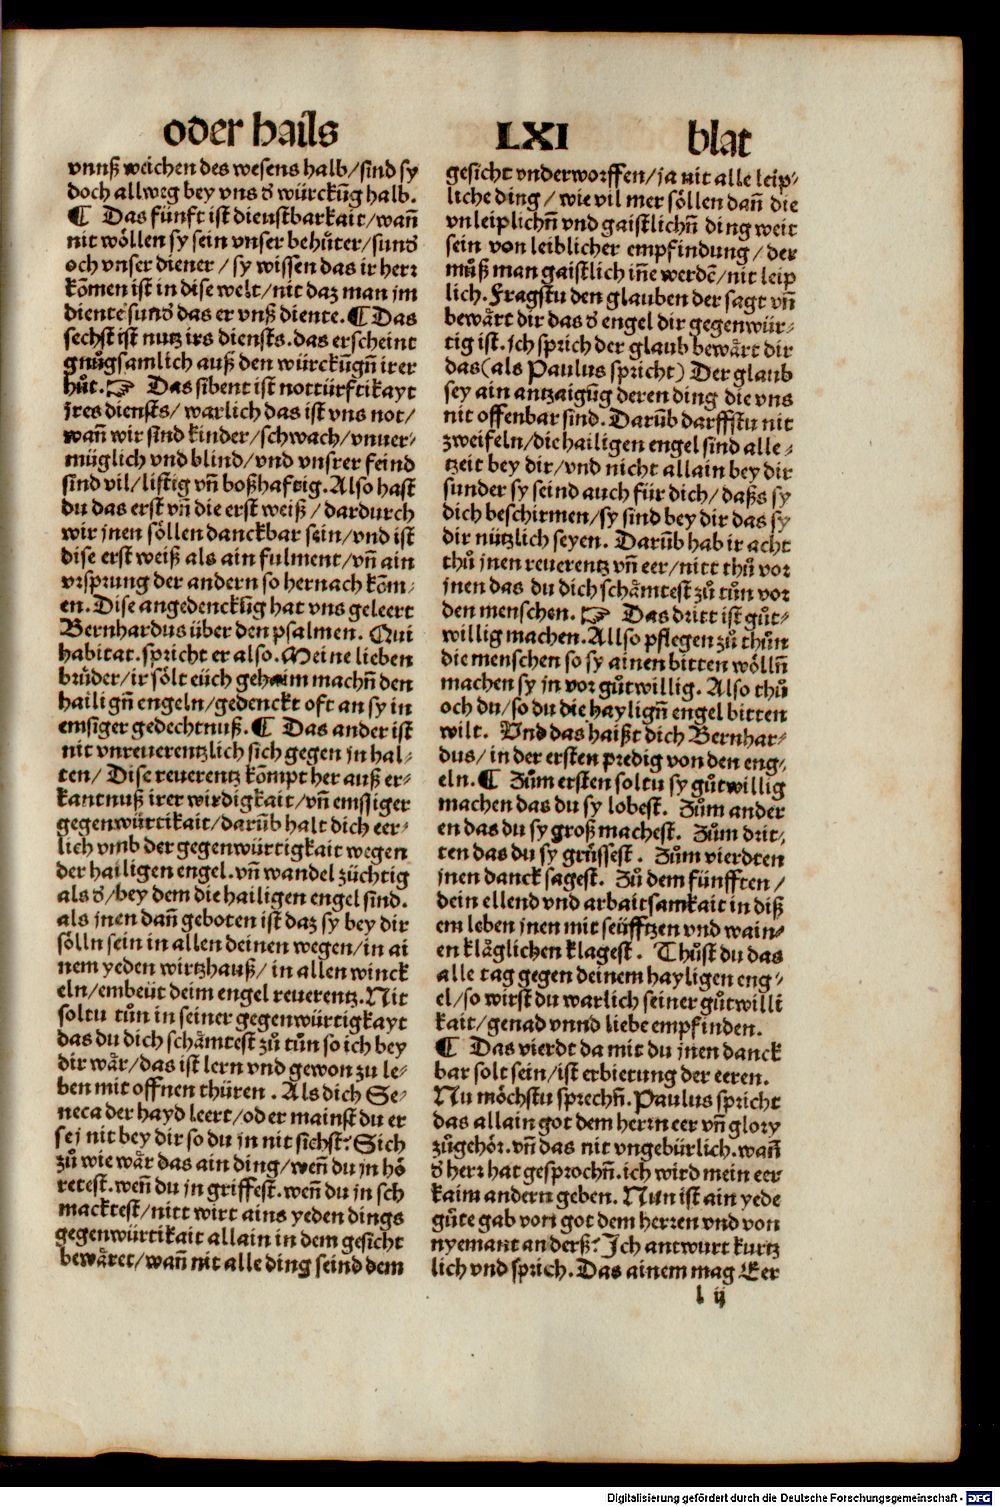 oder hails LXI blat
vnnß weichen des wesens halb/sind sy
doch allweg bey vns ď würckūg halb.
¶ Das fünft ist dienstbarkait/wañ
nit wöllen sy sein vnser behüter/sunď
och vnser diener/sy wissen das ir herꝛ
kōmen ist in dise welt/nit daz man jm
diente sunď das er vnß diente.¶ Das
sechst ist nutz irs diensts.das erscheint
gnůgsamlich auß den würckūgñ irer
hůt.☞ Das sibent ist nottürftikayt
jres diensts/warlich das ist vns not/
wañ wir sind kinder/schwach/vnuer-
müglich vnd blind/vnd vnsrer feind
sind vil/listig vñ boßhaftig.Also hast
du das erst vñ die erst weiß/dardurch
wir jnen söllen danckbar sein/vnd ist
dise erst weiß als ain fulment/vñ ain
vrsprung der andern so hernach kōm-
en.Dise angedenckūg hat vns geleert
Bernhardus über den psalmen. Qui
habitat.spricht er also.Meine lieben
brüder/ir sölt eüch gehaim machñ den
hailigñ engeln/gedenckt oft an sy in
emsiger gedechtnuß.¶ Das ander ist
nit vnreuerentzlich sich gegen jn hal-
ten/Dise reuerentz kōmpt her auß er-
kantnuß irer wirdigkait/vñ emssiger
gegenwürtikait/darūb halt dich eer-
lich vmb der gegenwürtigkait wegen
der hailigen engel.vñ wandel züchtig
als ď/bey dem die hailigen engel sind.
als jnen dañ geboten ist daz sy bey dir
sölln sein in allen deinen wegen/in ai
nem yeden wirtzhauß/in allen winck
eln/embeüt deim engel reuerentz.Nit
soltu tůn in seiner gegenwürtigkayt
das du dich schämtest zů tůn so ich bey
dir wär/das ist lern vnd gewon zu le-
ben mit offnen thüren. Als dich Se-
neca der hayd leert/oder mainst du er
sej nit bey dir so du jn nit sichst? Sich
zů wie wär das ain ding/weñ du jn hö
retest.weñ du jn griffest.weñ du jn sch
macktest/nitt wirt ains yeden dings
gegenwürtikait allain in dem gesicht
bewäret/wañ nit alle ding seind dem
gesicht vnderworffen/ja nit alle leip-
liche ding/wie vil mer söllen dañ die
vnleiplichñ vnd gaistlichñ ding weit
sein von leiblicher empfindung/der
můß man gaistlich iñe werdē/nit leip
lich.Fragstu den glauben der sagt vñ
bewärt dir das ď engel dir gegenwür-
tig ist.ich sprich der glaub bewärt dir
das(als Paulus spricht) Der glaub
sey ain antzaigūg deren ding die vns
nit offenbar sind.Darūb darffstu nit
zweifeln/die hailigen engel sind alle-
tzeit bey dir/vnd nicht allain bey dir
sunder sy seind auch für dich/daßs sy
dich beschirmen/sy sind bey dir das sy
dir nützlich seyen. Darūb hab ir acht
thů jnen reuerentz vñ eer/nitt thů vor
jnen das du dich schämtest zů tůn vor
den menschen.☞ Das dritt ist gůt-
willig machen.Allso pflegen zů thůn
die menschen so sy ainen bitten wöllñ
machen sy jn vor gůtwillig. Also thů
och du/so du die hayligñ engel bitten
wilt. Vnd das haißt dich Bernhar-
dus/in der ersten predig von den eng-
eln.¶ Zům ersten soltu sy gůtwillig
machen das du sy lobest. Zům ander
en das du sy groß machest. Zům drit-
ten das du sy grüssest. Zům vierdten
jnen danck sagest. Zů dem fünfften/
dein ellend vnd arbaitsamkait in diß
em leben jnen mit seüfftzen vnd wain-
en kläglichen klagest. Thůst du das
alle tag gegen deinem hayligen eng-
el/so wirst du warlich seiner gůtwilli
kait/genad vnnd liebe empfinden.
¶ Das vierdt da mit du jnen danck
bar solt sein/ist erbietung der eeren.
Nu möchstu sprechñ.Paulus spricht
das allain got dem herꝛn eer vñ glory
zůgehör.vñ das nit vngebürlich.wañ
ď herꝛ hat gesprochñ.ich wird mein eer
kaim andern geben. Nun ist ain yede
gůte gab von got dem herren vnd von
nyemant anderß? Ich antwurt kurtz
lich vnd sprich.Das ainem mag Eer
l ij
Digitalisierung gefördert durch die Deutsche Forschungsgemeinschaft - DFG